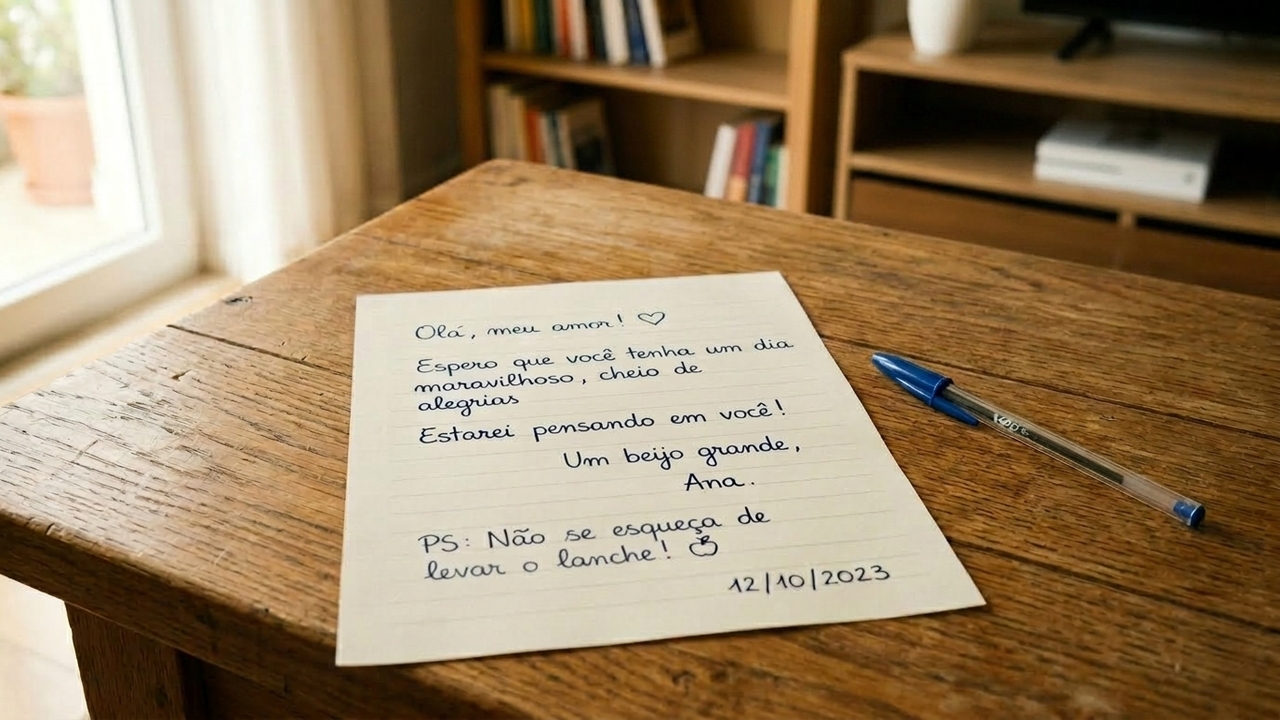 Olá, meu amor! ♡
Espero que você tenha um dia
maravilhoso, cheio de
alegrias
Estarei pensando em você!
Um beijo grande,
Ana.
PS: Não se esqueça de
levar o lanche!
12/10/2023